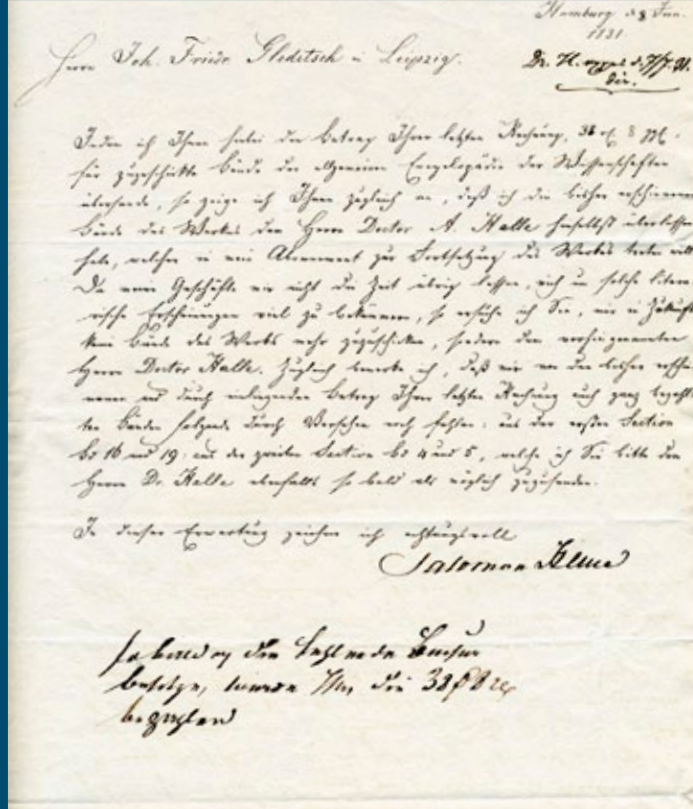 Hamburg d 8 Jun.
1831.
Herrn Joh. Friedr. Gleditsch in Leipzig.
Indem ich Ihnen hiebei den Betrag Ihrer letzten Rechnung, 38
für zugeschickte Bände der allgemeinen Encyclopädie der Wissenschaften
übersende, so zeige ich Ihnen zugleich an, daß ich die bisher erschienenen
Bände des Werkes dem Herrn Doctor A. Halle hieselbst überlassen
habe, welcher in mein Abonnement zur Fortsetzung des Werkes treten will.
Da meine Geschäfte mir nicht die Zeit übrig lassen, mich um solche litera-
rische Erscheinungen viel zu bekümmern, so ersuche ich Sie, mir in Zukunft
keine Bände des Werks mehr zuzuschicken, sondern dem vorhingenannten
Herrn Doctor Halle. Zugleich bemerke ich, daß mir von den bisher erschie-
nenen und durch einliegenden Betrag Ihrer letzten Rechnung auch ganz bezahl-
ten Bänden folgende durch Versehen noch fehlen: aus der ersten Section
bd 16 und 19; aus der zweiten Section bd 4 und 5, welche ich Sie bitte dem
Herrn Dr. Halle ebenfalls so bald als möglich zuzusenden.
In dieser Erwartung zeichne ich achtungsvoll
Salomon Heine
so bald die fehlende Bücher
werde Ihnen die 38
bezahlen